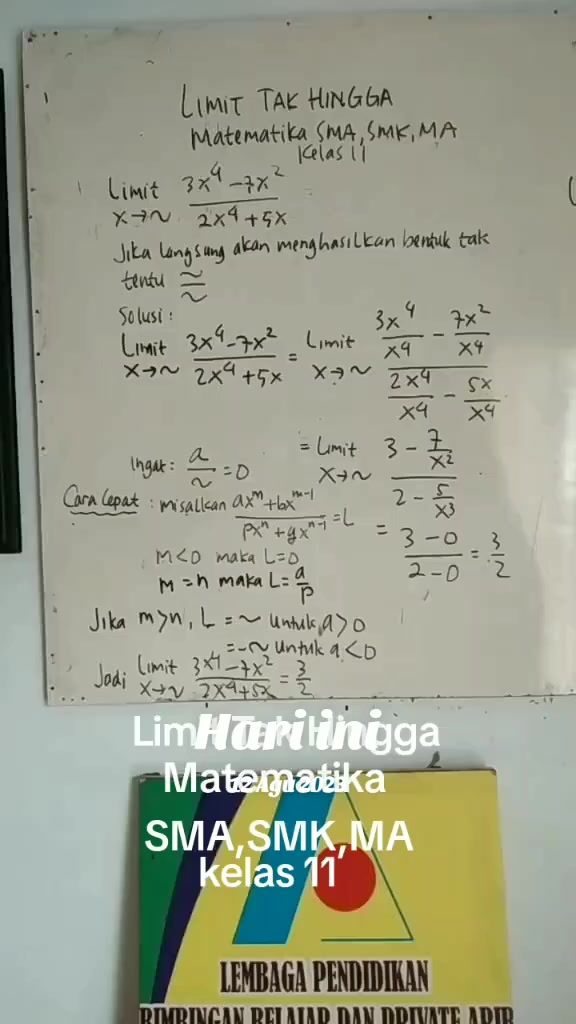 LIMIT TAK HINGGA
Matematika SMA, SMK, MA
Kelas 11
Limit x→~ (3x⁴ - 7x²)/(2x⁴ + 5x)
Jika langsung akan menghasilkan bentuk tak
tentu ~/~
Solusi :
Limit x→~ (3x⁴ - 7x²)/(2x⁴ + 5x) = Limit x→~ (3x⁴/x⁴ - 7x²/x⁴)/(2x⁴/x⁴ - 5x/x⁴)
= Limit x→~ (3 - 7/x²)/(2 - 5/x³)
Ingat : a/~ = 0
= (3 - 0)/(2 - 0) = 3/2
Cara Cepat : misalkan (ax^m + bx^(m-1))/(px^n + qx^(n-1)) = L
M<0 maka L=0
M = n maka L = a/p
Jika m>n, L = ~ untuk a>0
= -~ untuk a<0
Jadi Limit x→~ (3x⁴ - 7x²)/(2x⁴ + 5x) = 3/2
Limit Tak Hingga
Hari ini
Matematika
SMA,SMK,MA
kelas 11
LEMBAGA PENDIDIKAN
BIMBINGAN BELAJAR DAN PRIVATE